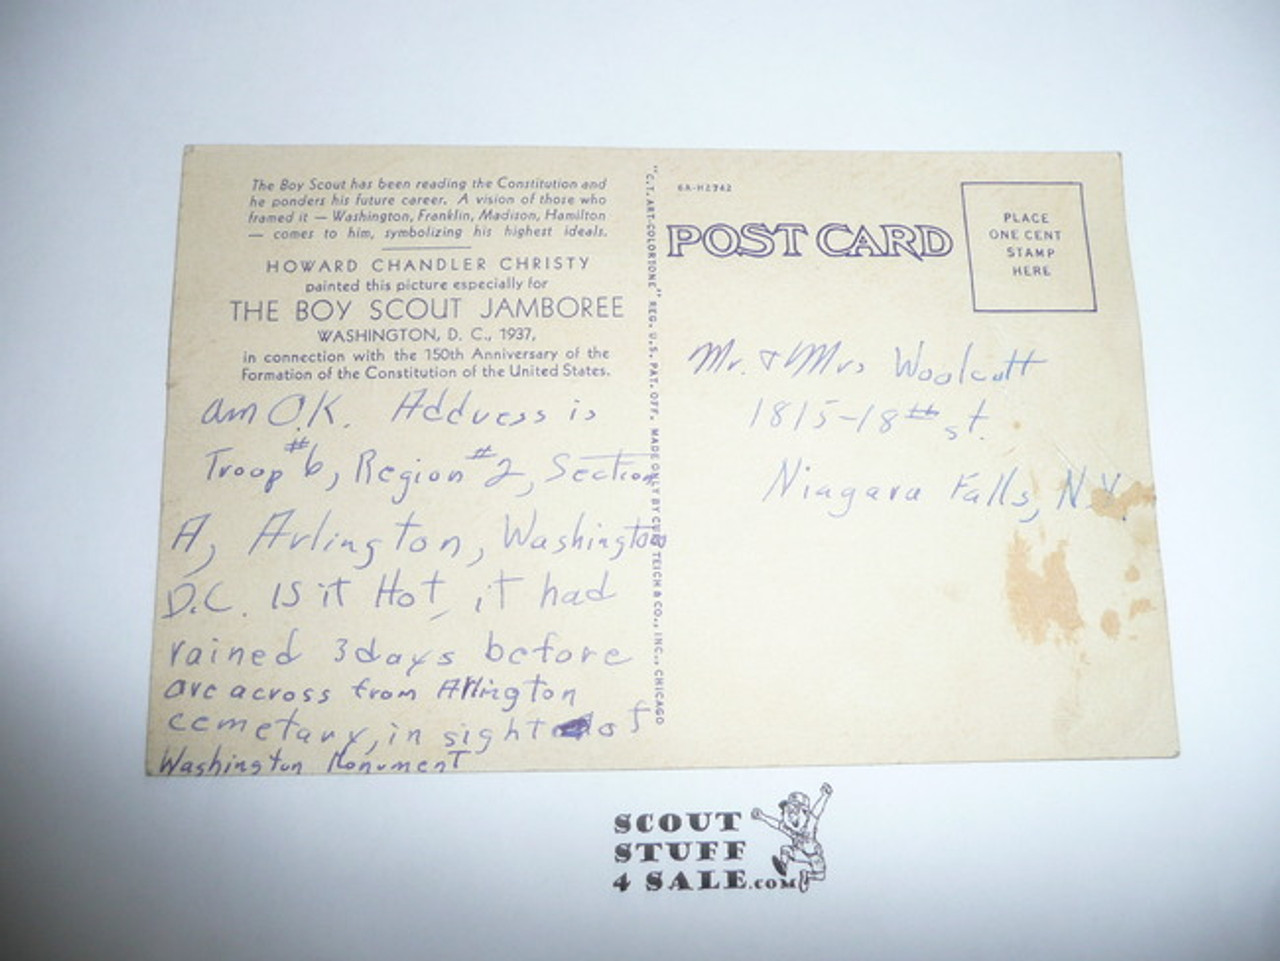 The Boy Scout has been reading the Constitution and
he ponders his future career. A vision of those who
framed it — Washington, Franklin, Madison, Hamilton
— comes to him, symbolizing his highest ideals.
HOWARD CHANDLER CHRISTY
painted this picture especially for
THE BOY SCOUT JAMBOREE
WASHINGTON, D. C., 1937,
in connection with the 150th Anniversary of the
Formation of the Constitution of the United States.
am O.K. Address is
Troop #6, Region #2, Section
A, Arlington, Washington
D.C. IS it Hot, it had
rained 3 days before
are across from Arlington
cemetary, in sight of
Washington Monument
"C.T. ART-COLORTONE" REG. U.S. PAT. OFF. MADE ONLY BY CURT TEICH & CO., INC., CHICAGO
6A-H2942
POST CARD
PLACE
ONE CENT
STAMP
HERE
Mr. & Mrs Woolcott
1815-18th st.
Niagara Falls, N.Y.
SCOUT
STUFF
4 SALE.COM